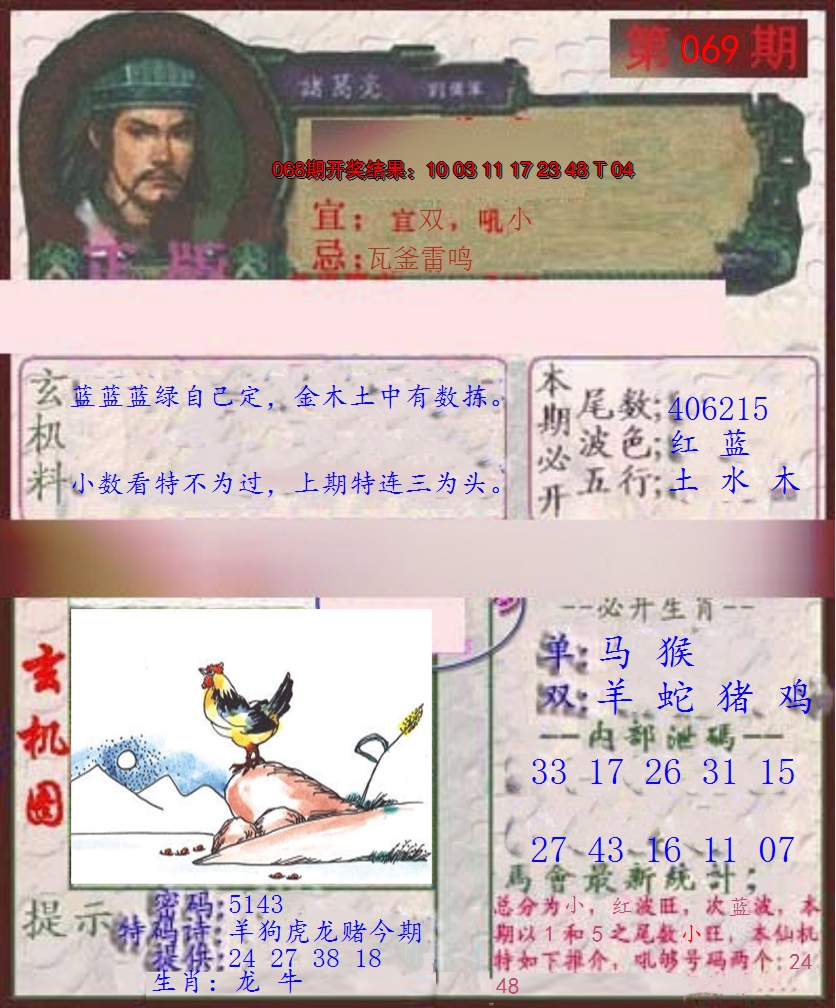 第 069 期
諸葛亮
068期开奖结果：10 03 11 17 23 48 T 04
宜：宜双，吼小
忌：瓦釜雷鸣
正版
玄机料
蓝蓝蓝绿自己定，金木土中有数拣。
小数看特不为过，上期特连三为头。
本期必开
尾数；406215
波色；红 蓝
五行；土 水 木
玄机图
--必开生肖--
单：马 猴
双：羊 蛇 猪 鸡
一内部泄碼一
33 17 26 31 15
27 43 16 11 07
馬會最新統計；
总分为小，红波旺，次蓝波，本
期以1和5之尾数小旺，本仙机
特如下推介，吼够号码两个：24
48
提示
密码：5143
特码诗：羊狗虎龙赌今期
提供：24 27 38 18
生肖：龙 牛